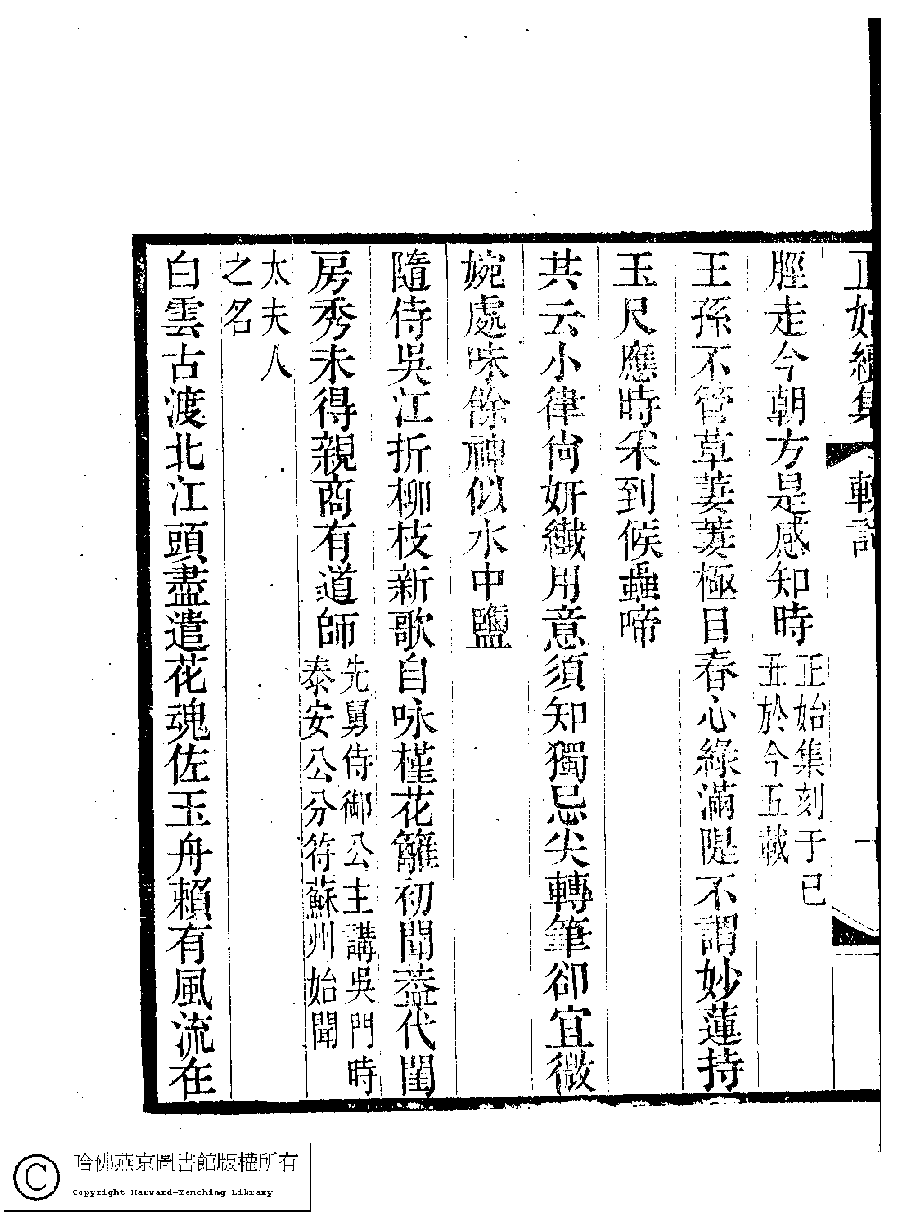 正始續集
題詞
脛走今朝方是感知時正始集刻于己
丑於今五載
王孫不管草萋萋極目春心綠滿隄不謂妙蓮持
玉尺應時采到候蟲啼
共云小律尙妍纖用意須知獨忌尖轉筆卻宜微
婉處味餘神似水中鹽
隨侍吳江折柳枝新歌自咏槿花籬初聞蓋代閨
房秀未得親商有道師先舅侍御公主講吳門時
泰安公分符蘇州始聞
太夫人
之名
白雲古渡北江頭盡遣花魂佐玉舟賴有風流在
哈佛燕京圖書館版權所有
Copyright Harvard-Yenching Library